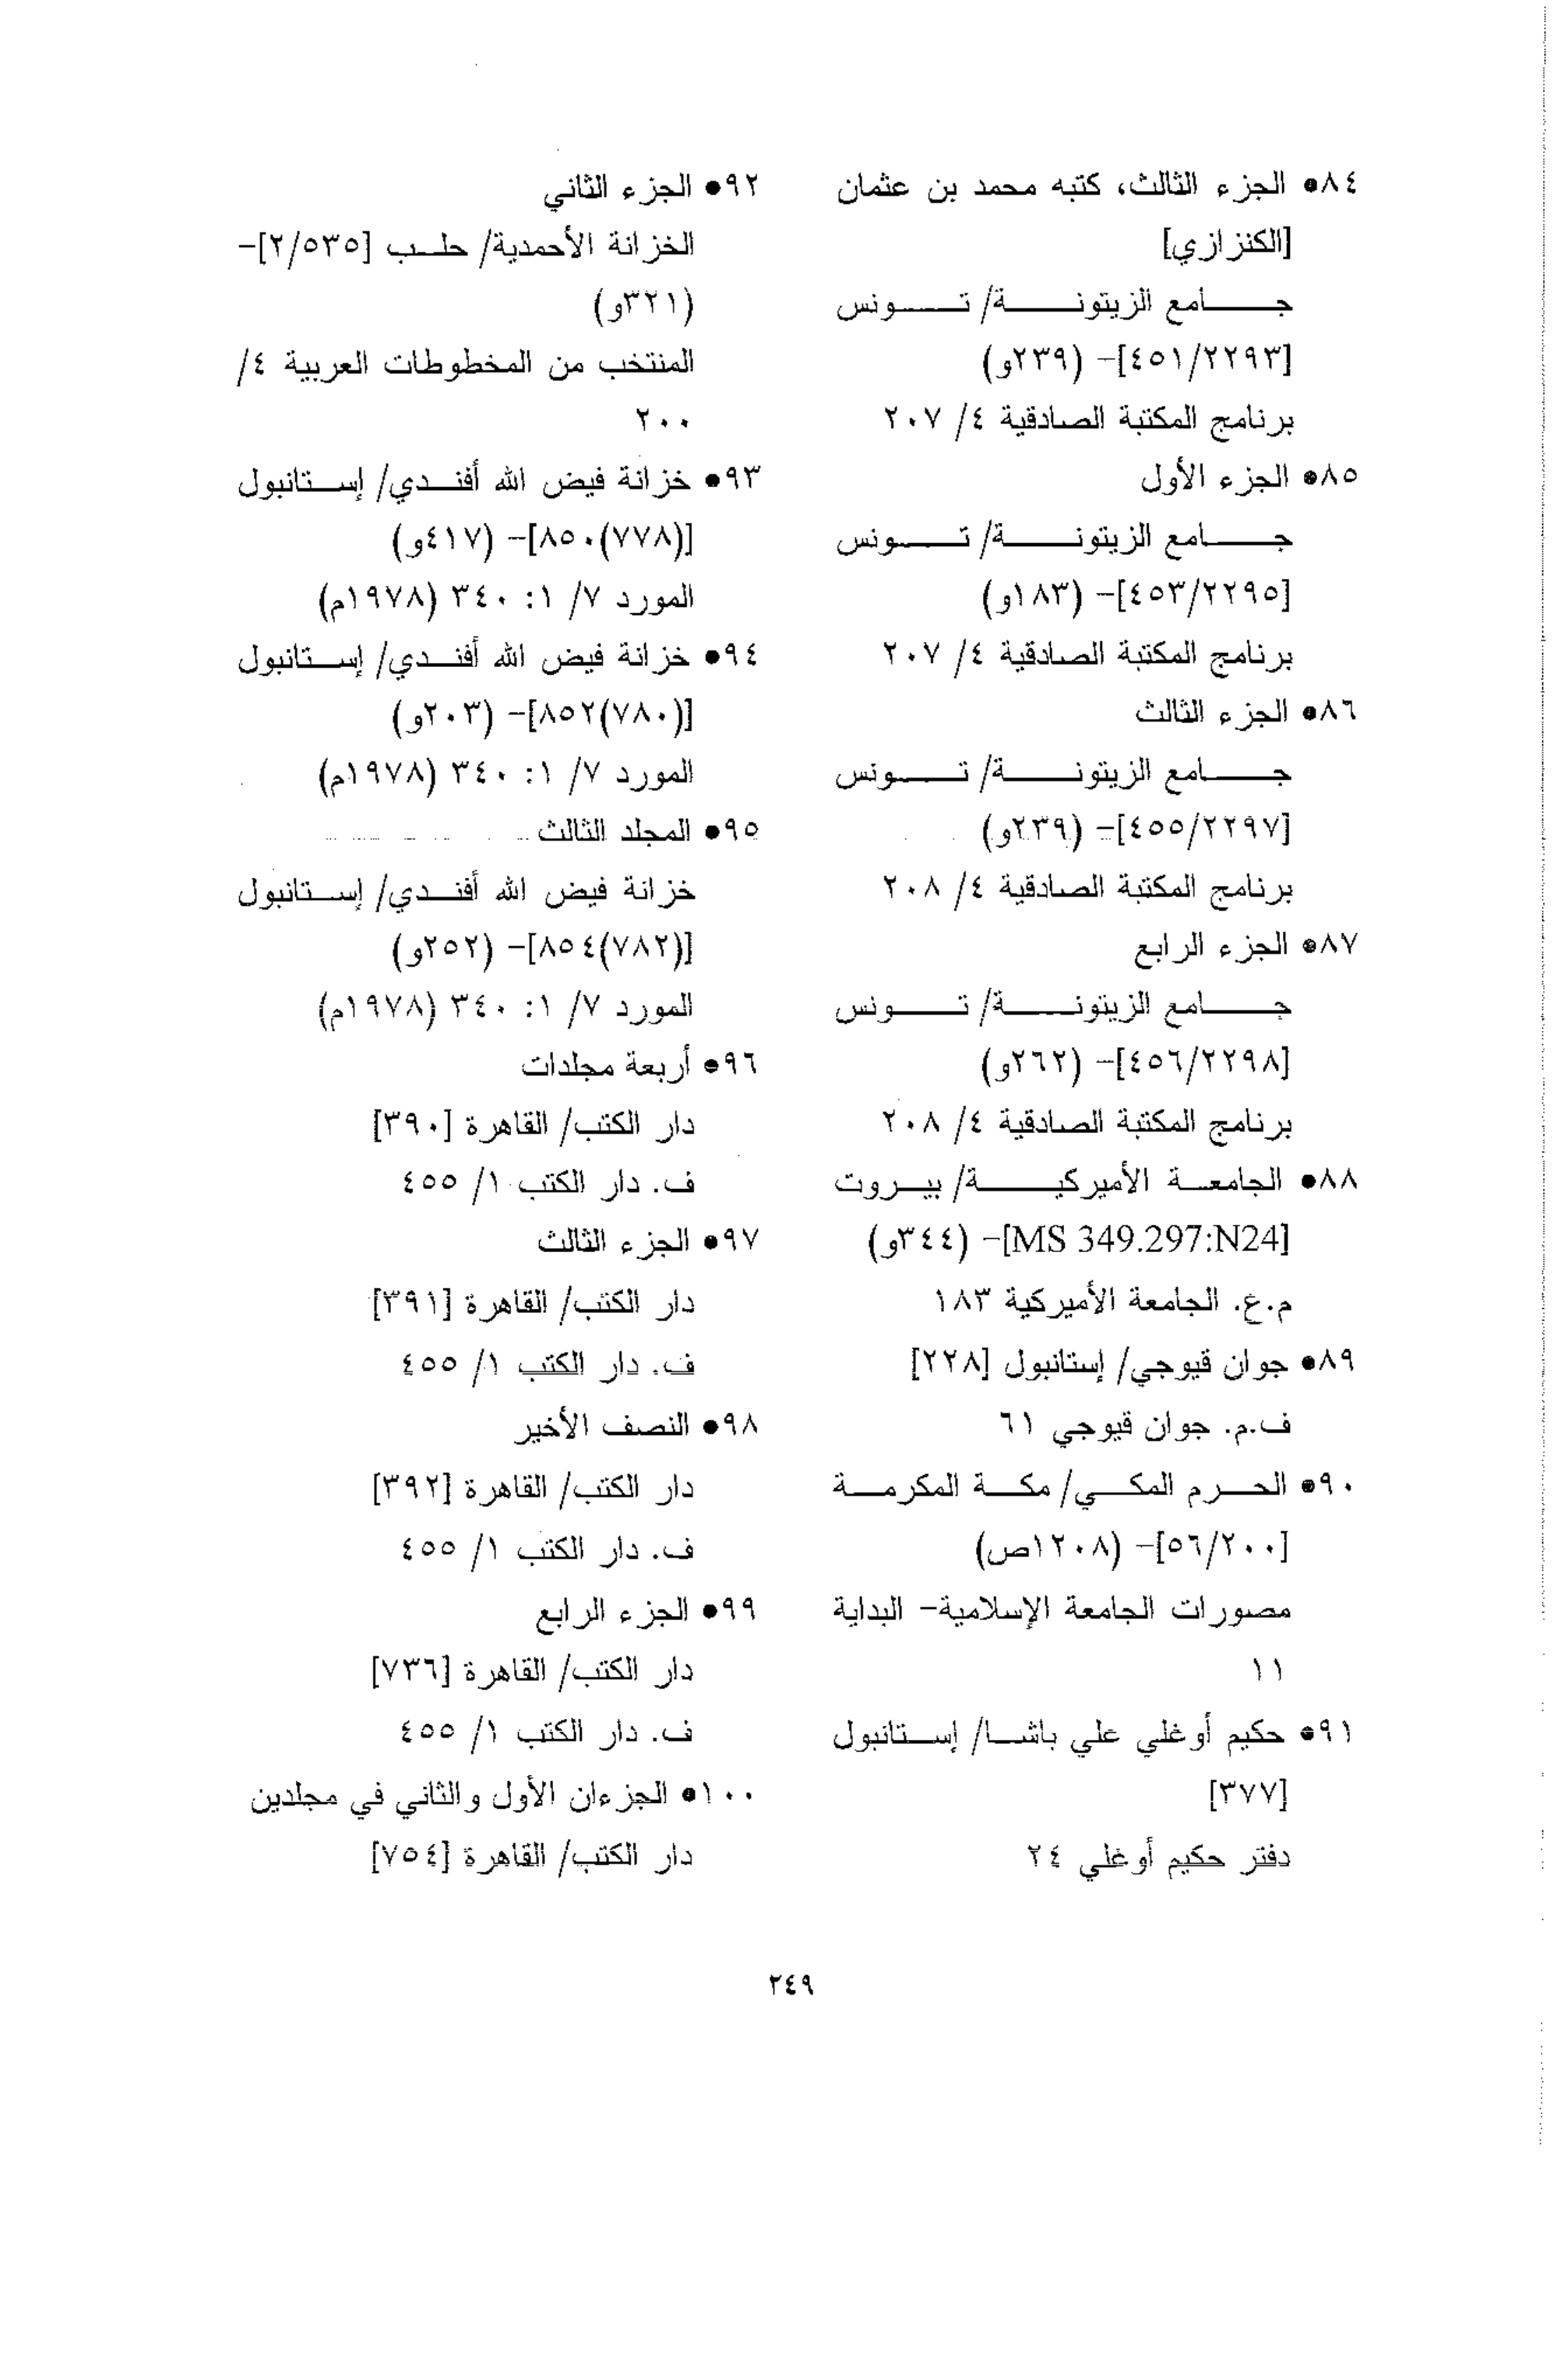 ٨٤• الجزء الثالث، كتبه محمد بن عثمان
[الكنزازي]
جامع الزيتونة/ تونس
[٤٥١/٢٢٩٣]- (٢٣٩و)
برنامج المكتبة الصادقية ٤/ ٢٠٧
٨٥• الجزء الأول
جامع الزيتونة/ تونس
[٤٥٣/٢٢٩٥]- (١٨٣و)
برنامج المكتبة الصادقية ٤/ ٢٠٧
٨٦• الجزء الثالث
جامع الزيتونة/ تونس
[٤٥٥/٢٢٩٧]- (٢٣٩و)
برنامج المكتبة الصادقية ٤/ ٢٠٨
٨٧• الجزء الرابع
جامع الزيتونة/ تونس
[٤٥٦/٢٢٩٨]- (٢٦٢و)
برنامج المكتبة الصادقية ٤/ ٢٠٨
٨٨• الجامعة الأميركية/ بيروت
[MS 349.297:N24]- (٣٤٤و)
م.ع. الجامعة الأميركية ١٨٣
٨٩• جوان قيوجي/ إستانبول [٢٢٨]
ف.م. جوان قيوجي ٦١
٩٠• الحرم المكي/ مكة المكرمة
[٥٦/٢٠٠]- (١٢٠٨ص)
مصورات الجامعة الإسلامية- البداية
١١
٩١• حكيم أوغلي علي باشا/ إستانبول
[٣٧٧]
دفتر حكيم أوغلي ٢٤
٩٢• الجزء الثاني
الخزانة الأحمدية/ حلب [٢/٥٣٥]-
(٣٢١و)
المنتخب من المخطوطات العربية ٤/
٢٠٠
٩٣• خزانة فيض الله أفندي/ إستانبول
[(٧٧٨)٨٥٠]- (٤١٧و)
المورد ٧/ ١: ٣٤٠ (١٩٧٨م)
٩٤• خزانة فيض الله أفندي/ إستانبول
[(٧٨٠)٨٥٢]- (٢٠٣و)
المورد ٧/ ١: ٣٤٠ (١٩٧٨م)
٩٥• المجلد الثالث
خزانة فيض الله أفندي/ إستانبول
[(٧٨٢)٨٥٤]- (٢٥٢و)
المورد ٧/ ١: ٣٤٠ (١٩٧٨م)
٩٦• أربعة مجلدات
دار الكتب/ القاهرة [٣٩٠]
ف. دار الكتب ١/ ٤٥٥
٩٧• الجزء الثالث
دار الكتب/ القاهرة [٣٩١]
ف. دار الكتب ١/ ٤٥٥
٩٨• النصف الأخير
دار الكتب/ القاهرة [٣٩٢]
ف. دار الكتب ١/ ٤٥٥
٩٩• الجزء الرابع
دار الكتب/ القاهرة [٧٣٦]
ف. دار الكتب ١/ ٤٥٥
١٠٠• الجزءان الأول والثاني في مجلدين
دار الكتب/ القاهرة [٧٥٤]
٢٤٩